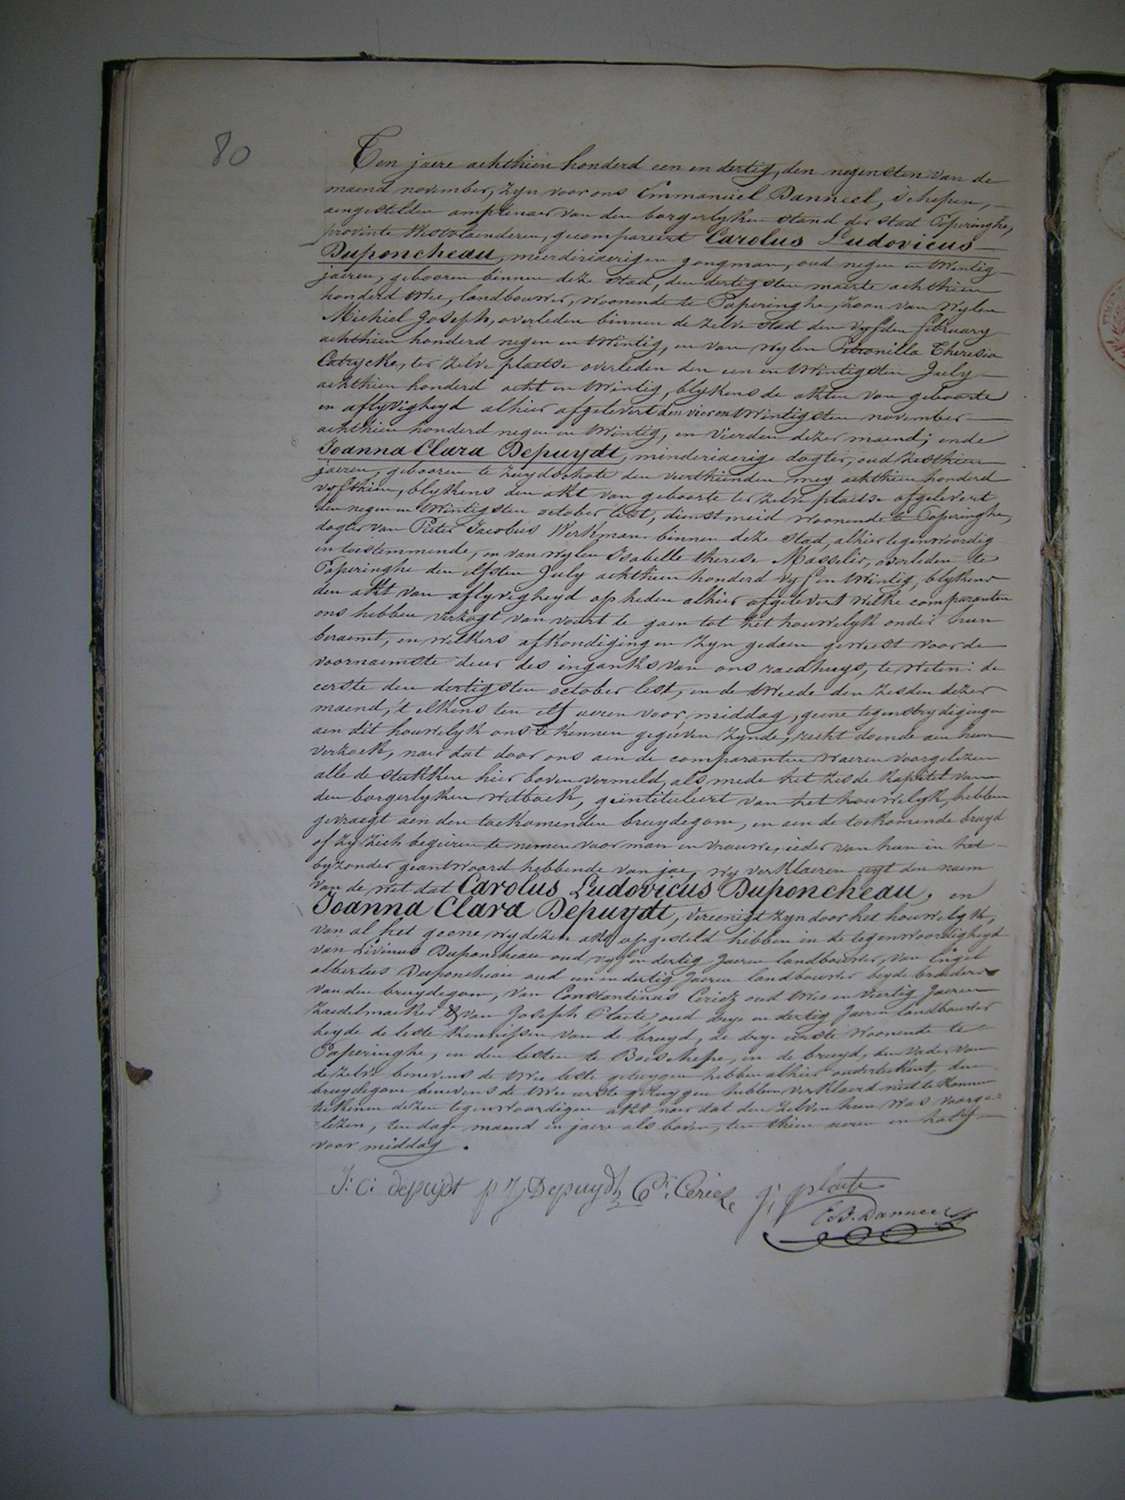 80
Ten jaere achthien honderd een en dertig, den negensten van de
maend november, zyn voor ons Emmanuel Danneel, schepen,
aengestelden amptenaer van den borgerlyken stand der stad Poperinghe,
provintie Westvlaenderen, gecompareert Carolus Ludovicus
Duponcheau, meerderjaerigen jongman, oud negen en twintig
jaeren, gebooren binnen deze stad, den dertigsten maerte achthien
honderd twee, landbouwer, woonende te Poperinghe, zoon van wylen
Michiel Joseph, overleden binnen de zelve stad den vyfden february
achthien honderd negen en twintig, en van wylen Petronilla Theresia
Catrycke, ter zelve plaetse overleden den een en twintigsten July
achthien honderd acht en twintig, blykens de akten van geboorte
en aflyvigheyd alhier afgelevert den vier en twintigsten november
achthien honderd negen en twintig, en vierden dezer maend; ende
Joanna Clara Depuydt, minderjaerige dogter, oud zesthien
jaeren, gebooren te Zuydschote den veerthienden mey achthien honderd
vyfthien, blykens den akt van geboorte ter zelve plaetse afgelevert
den negen en twintigsten october lest, dienstmeid woonende te Poperinghe,
dogter van Pieter Jacobus Werkman binnen deze stad, alhier tegenwoordig
en toestemmende, en van wylen Isabelle therese Masselis, overleden te
Poperinghe den elfsten July achthien honderd vyf en twintig, blykens
den akt van aflyvigheyd op heden alhier afgelevert welke comparanten
ons hebben verzogt van voort te gaen tot het houwelyk onder hun
beraemt, en welkers afkondigingen zyn gedaen geweest voor de
voornaemste deur des inganks van ons raedhuys, te weten: de
eerste den dertigsten october lest, en de tweede den zesden dezer
maend, 't elkens ten elf ueren voor middag, geene tegenstrydigingen
aen dit houwelyk ons te kennen gegeven zynde, recht doende aen hun
verzoek, naer dat door ons aen de comparanten waeren voorgelezen
alle de stukken hier boven vermeld, als mede het zesde kapittel van
den borgerlyken wetboek, geïntituleert van het houwelyk, hebben
gevraegt aen den toekomenden bruydegom, en aen de toekomende bruyd
of zy zich begeeren te nemen voor man en vrouwe, ieder van hun in het
byzonder geantwoord hebbende van jae, wy verklaeren uyt den naem
van de wet dat Carolus Ludovicus Duponcheau, en
Joanna Clara Depuydt, vereenigt zyn door het houwelyk,
van al het goone wy dezen akt opgesteld hebben in de tegenwoordigheyd
van Livinus Duponcheau oud vyf en dertig Jaeren landbouwer, van Engel
albertus Duponcheau oud een en dertig Jaeren landbouwer beyde broeders
van den bruydegom, van Constantinus Ceriez oud twee en veertig Jaeren
Zaedelmaeker & van Joseph Plaete oud drye en dertig Jaeren landbouwer
beyde de leste kennissen van de bruyd, de drye eerste woonende te
Poperinghe, en den lesten te Boeschepe, en de bruyd, den vader van
de zelve benevens de twee leste getuygen hebben alhier onderteekent, den
bruydegom benevens de twee eerste getuygen hebben verklaerd niet te konnen
teekenen dezen tegenwoordigen akt naer dat den zelven hun was voorge-
lezen, ten dage maend en jaere als boven, ten thien ueren en half
voor middag.
J: C: depuydt p J Depuydt C. Ceriez J: plaete
E. Danneel